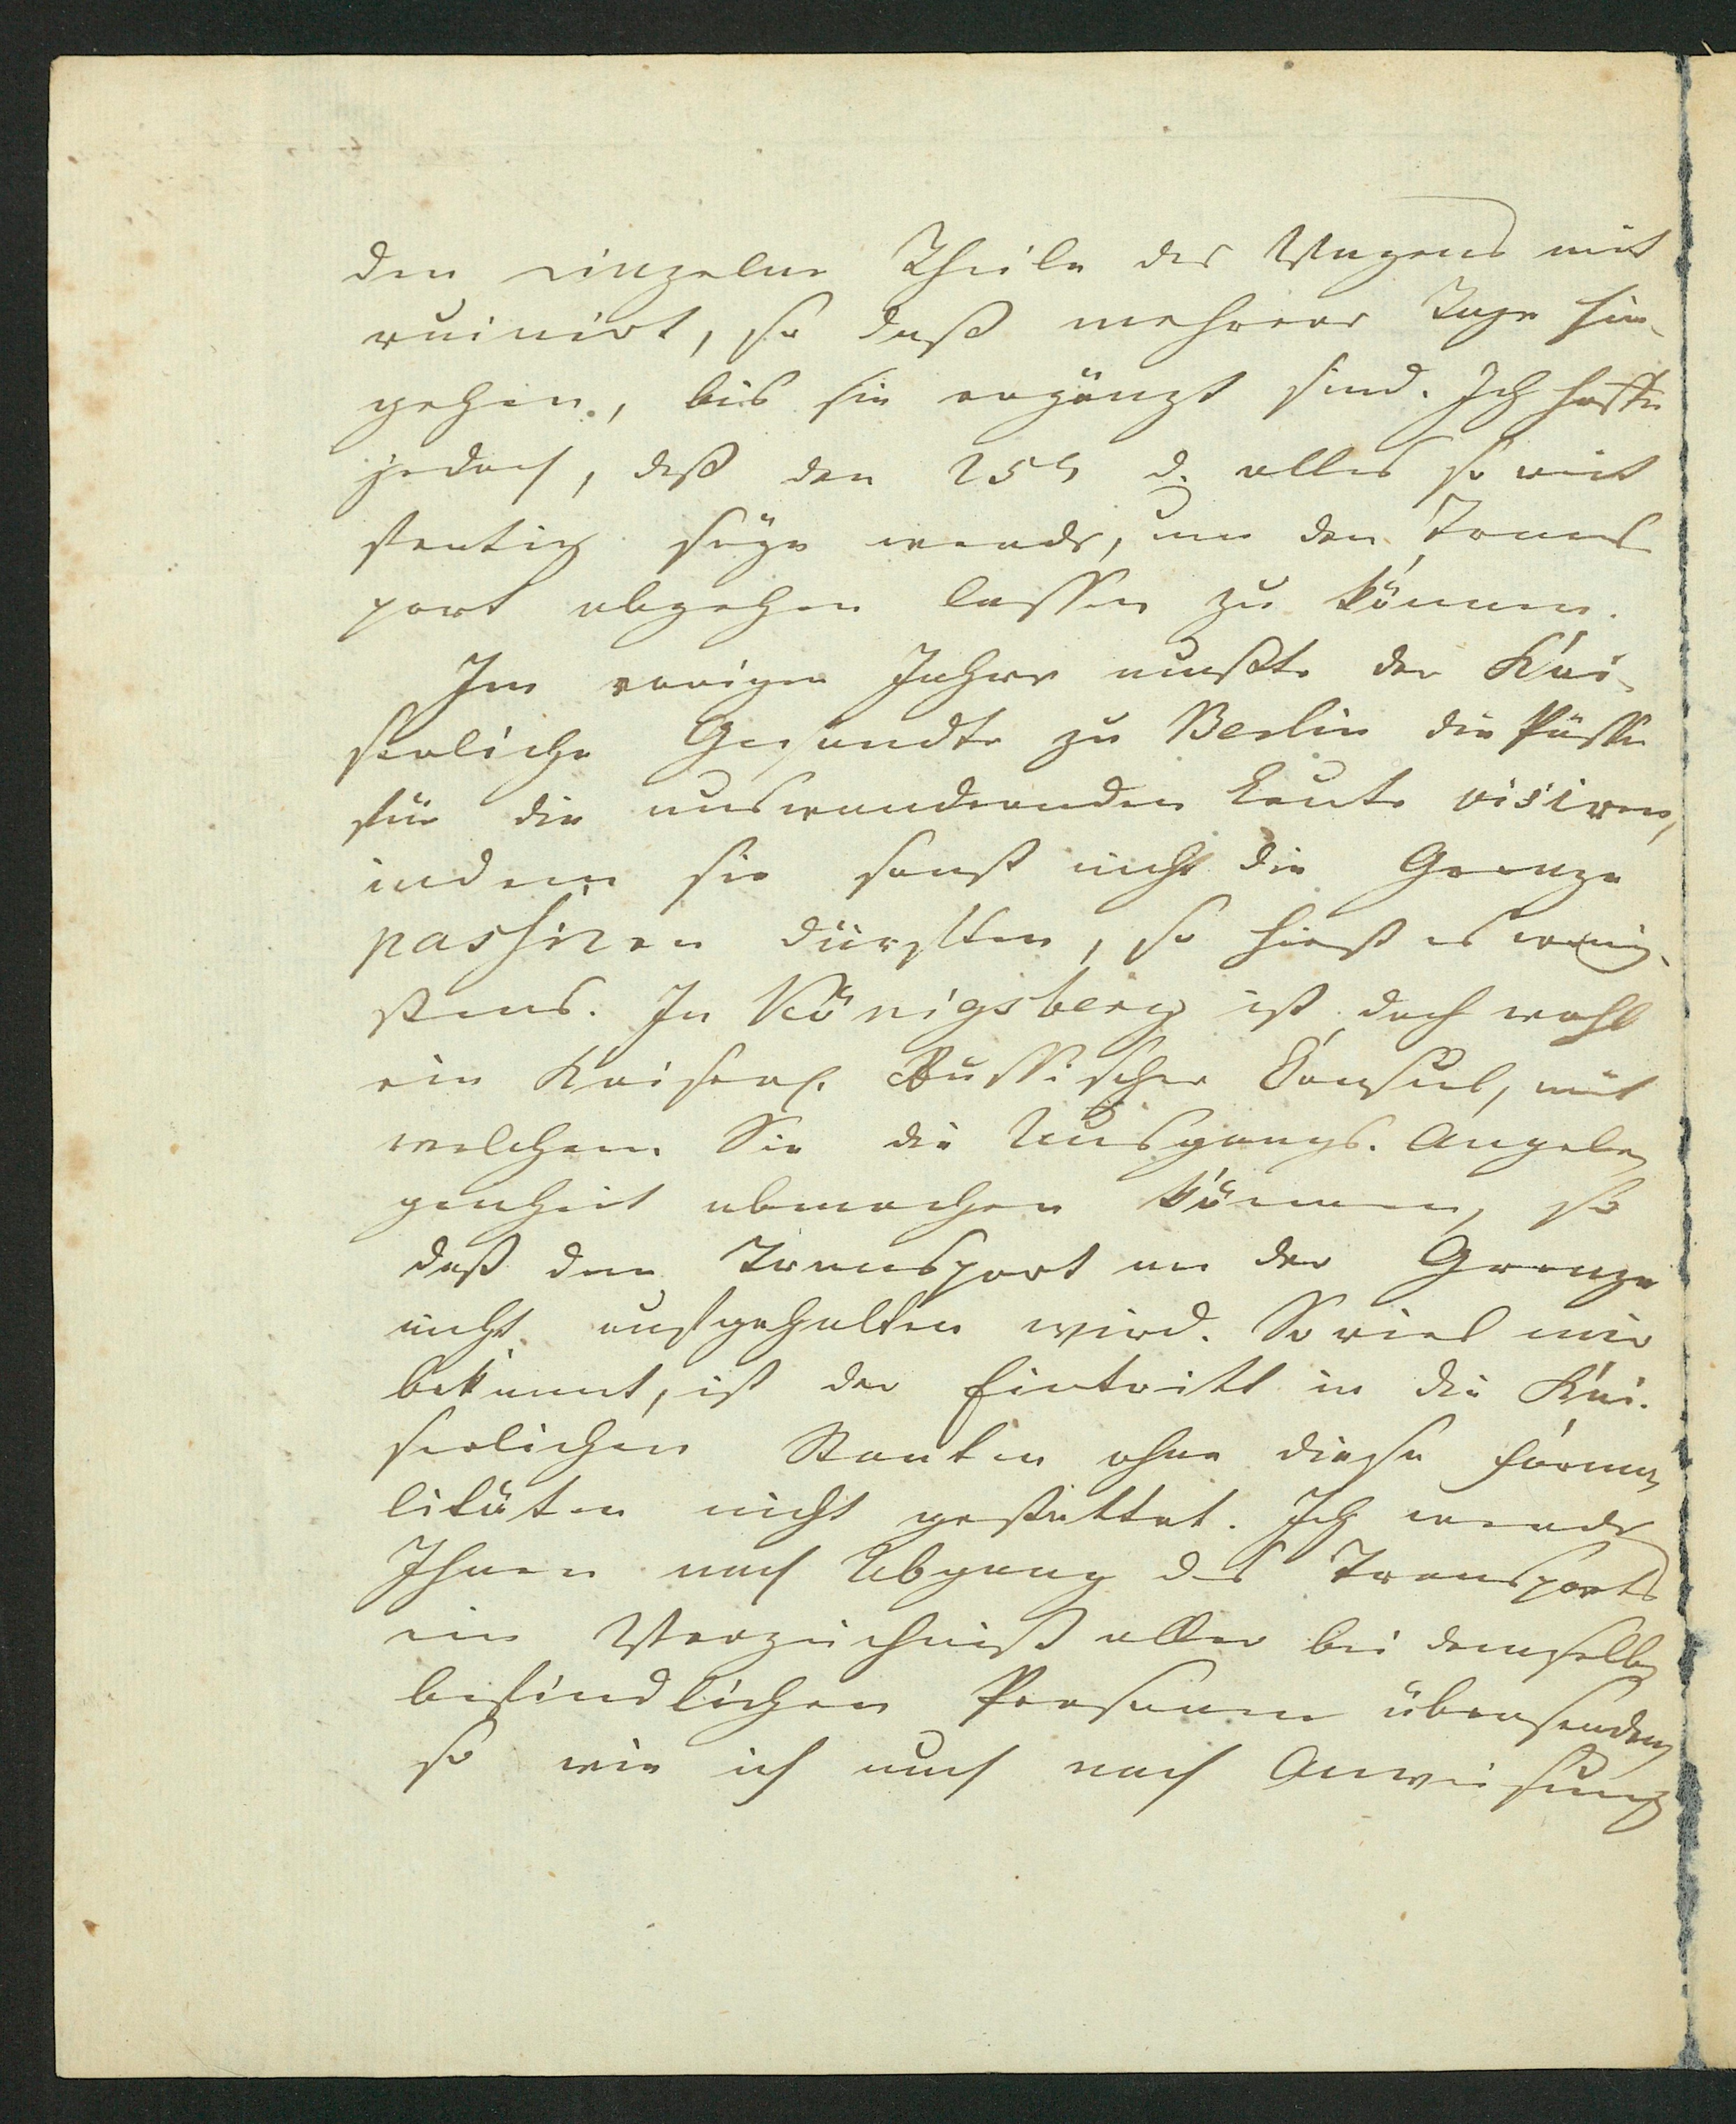 den einzelne Theile des Wagens mit
ruinirt, so daß mehrere Tage hin-
gehen, bis sie ergänzt sind. Ich hoffe
jedoch, daß den 25t d. alles so weit
fertig seyn werde, um den Trans
port abgehen lassen zu können.
Im vorigen Jahre mußte der Kai-
serliche Gesandte zu Berlin die Pässe
für die auswandernden Leute visiren,
indem sie sonst nicht die Grenze
passiren dürften, so hieß es wenig-
stens. In Königsberg ist doch wohl
ein Kaiserl. Russischer Consul, mit
welchem Sie die Ausgangs. Angele
genheit abmachen können, so
daß der Transport an der Grenze
nicht aufgehalten wird. So viel mir
bekannt, ist der Eintritt in die Kai-
serlichen Staaten ohne diese Forma
litäten nicht gestattet. Ich werde
Ihnen nach Abgang des Transports
ein Verzeichniß aller bei demselben
befindlichen Personen übersenden
so wie ich auch nach Anweisung